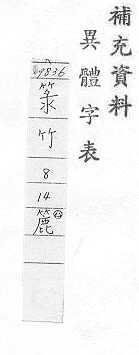 補充資料
異體字表
9836
箓
竹
8
14
簏